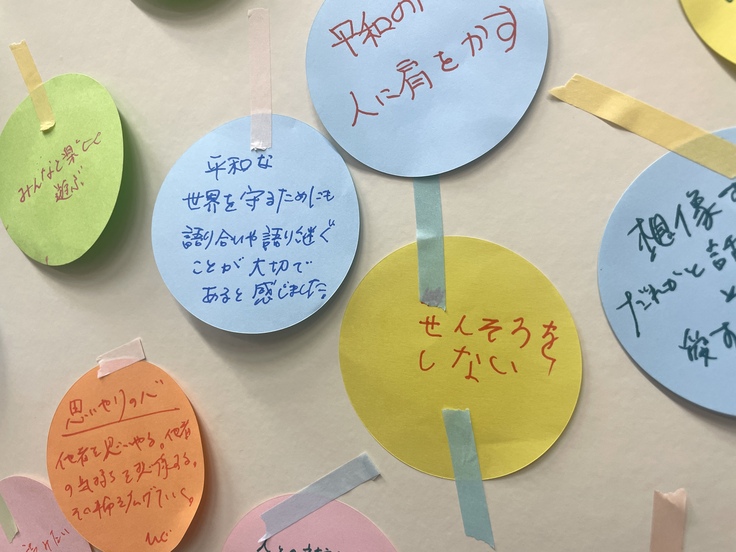 平和の
人に肩をかす
みんなと楽しく
遊ぶ
平和な
世界を守るためにも
語り合いや語り継ぐ
ことが大切で
あると感じました
せんそろを
しない
想像す
だれかと話
思いやりの心
他者を思いやる。他者
の気持ちを尊重する。
その輪を広げていく。